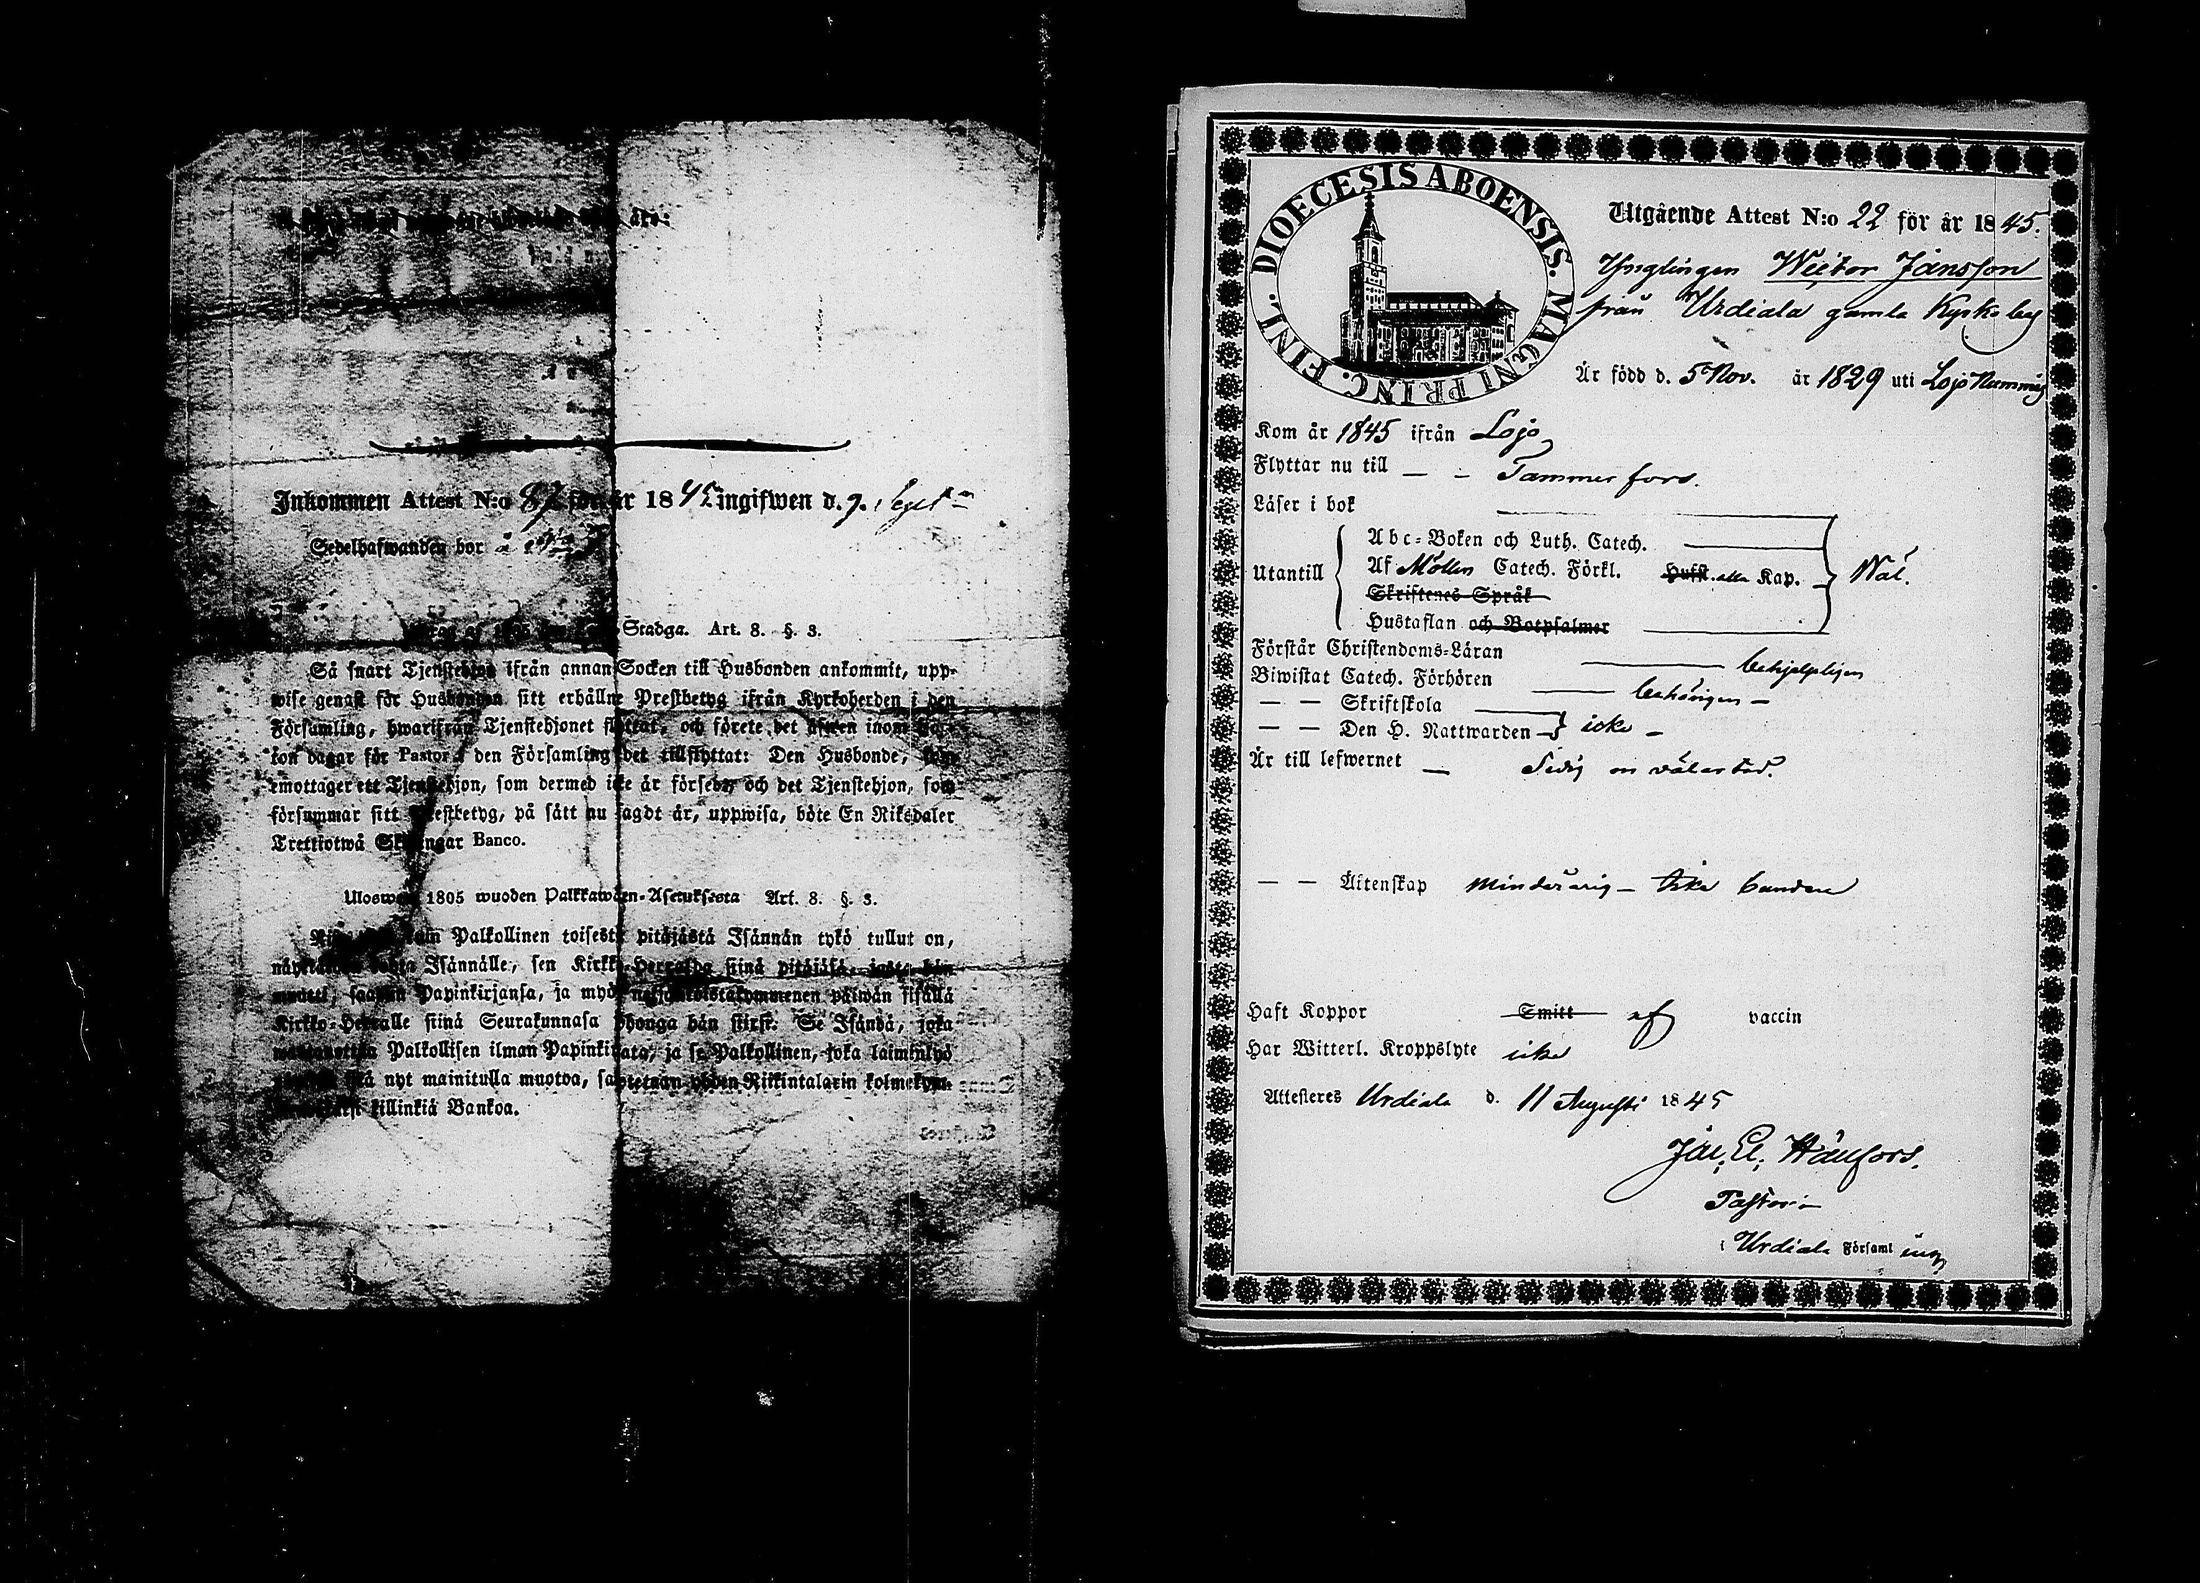 Inkommen Attest N:o 87 för år 1845 ingifwen d. 9. Sept
Sedelhafwanden bor å
Stadga. Art. 8. §. 3.
Så snart Tjenstehjon ifrån annan Socken till Husbonden ankommit, upp-
wise genast för Husbonden sitt erhållne Prestbetyg ifrån Kyrkoherden i den
Församling, hwarifrån Tjenstehjonet flyttat, och förete det äfwen inom
ton dagar för Pastor i den Församling det tillflyttat: Den Husbonde, som
emottager ett Tjenstehjon, som dermed icke är försedt, och det Tjenstehjon, som
försummar sitt Prestbetyg, på sätt nu sagdt är, uppwisa, böte En Riksdaler
Trettiotwå Skillingar Banco.
Uloswedet 1805 wuoden Palkkawäen-Asetuksesta Art. 8. §. 3.
Palkollinen toisesta pitäjästä Isännän tykö tullut on,
Isännälle, sen Kirkko-Herralda siinä pitäjäsä, josta hän
muutti, saadun Papinkirjansa, ja myös neljäntoistakymmenen päiwän sisällä
Kirkko-Herralle siinä Seurakunnasa jhonga hän siirst. Se Isändä, joka
Palkollisen ilman Papinkirjata, ja se Palkollinen, joka laiminlyö
nyt mainitulla muotoa, Riikintalarin kolmekym-
killinkiä Bankoa.
DIOECESIS ABOENSIS. MAGNI PRINC. FINL.
Utgående Attest N:o 22 för år 1845.
Ynglingen Wictor Jansson
från Urdiala gamla Kyrkoby
Är född d. 5 Nov. år 1829 uti Lojo Nummis
Kom år 1845 ifrån Lojo
Flyttar nu till — – Tammerfors.
Läser i bok
Abc-Boken och Luth. Catech.
Utantill Af Möllers Catech. Förkl. Hufst. alla Kap. Wäl.
Skriftenes Språk
Hustaflan och Botpsalmer
Förstår Christendoms-Läran behjelpligen
Biwistat Catech. Förhören behörigen –
— — Skriftskola
— — Den H. Nattwarden – icke –
Är till lefwernet — Sedig en välartad.
— — Äktenskap minderårig – icke bunden
Haft Koppor Smitt af vaccin
Har Witterl. Kroppslyte icke
Attesteres Urdiala d. 11 Augusti 1845
Pastor
i Urdiala Församling